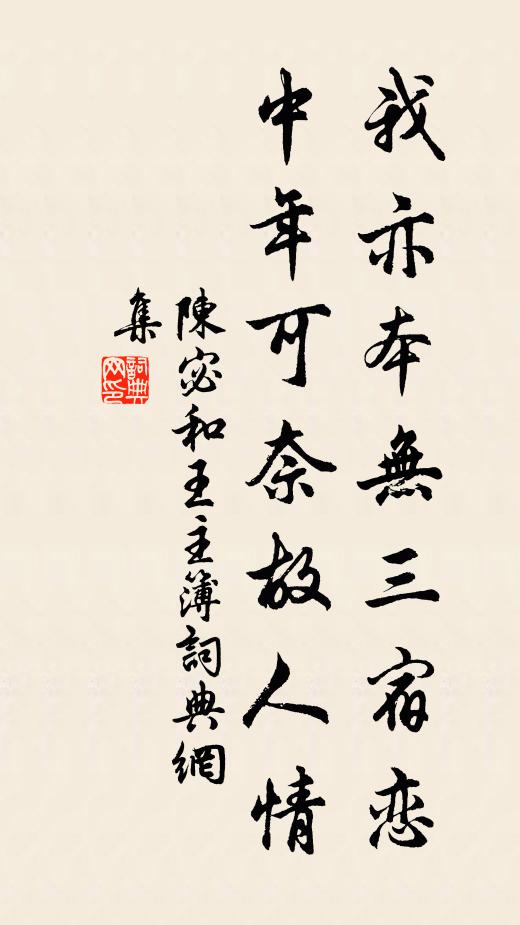 我亦本無三宿恋
中年可奈故人情
陳宓和王主簿詞典網
集
詞典
网印